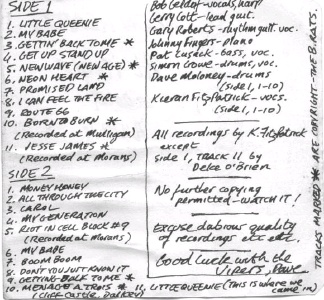 SIDE 1
1. LITTLE QUEENIE
2. MY BABE
3. GETTIN' BACK TO ME *
4. GET UP STAND UP
5. NEW WAVE (NEW AGE) *
6. NEON HEART *
7. PROMISED LAND
8. I CAN FEEL THE FIRE
9. ROUTE 66
10. BORN TO BURN *
(Recorded at Mulligan)
11. JESSE JAMES *
(Recorded at Morans)
SIDE 2
1. MONEY HONEY
2. ALL THROUGH THE CITY
3. CAROL
4. MY GENERATION
5. RIOT IN CELL BLOCK #9
(Recorded at Morans)
6. MY BABE
7. BOOM BOOM
8. DON'T YOU JUST KNOW IT
9. GETTING BACK TO ME *
10. MENAGE A TROIS *
(Cliff Castle, Dalkey)
11. LITTLE QUEENIE (This is where we came in)
Bob Geldof - vocals, harp
Gerry Cott - lead guit.
Gary Roberts - rhythm guit. voc.
Johnny Fingers - piano
Pat Cusack - bass, voc.
Simon Crowe - drums, voc.
Dave Moloney - drums
(Side 1, 1-10)
Kieran Fitzpatrick - vocs.
(Side 1, 1-10)
All recordings by K. Fitzpatrick
except
Side 1, TRACK 11 by
Deke O'Brien
No further copying
permitted - WATCH IT!
Excuse dubious quality
of recordings etc etc.
Good luck with the
Vipers, Dave
TRACKS MARKED * ARE COPYRIGHT - THE B. RATS.